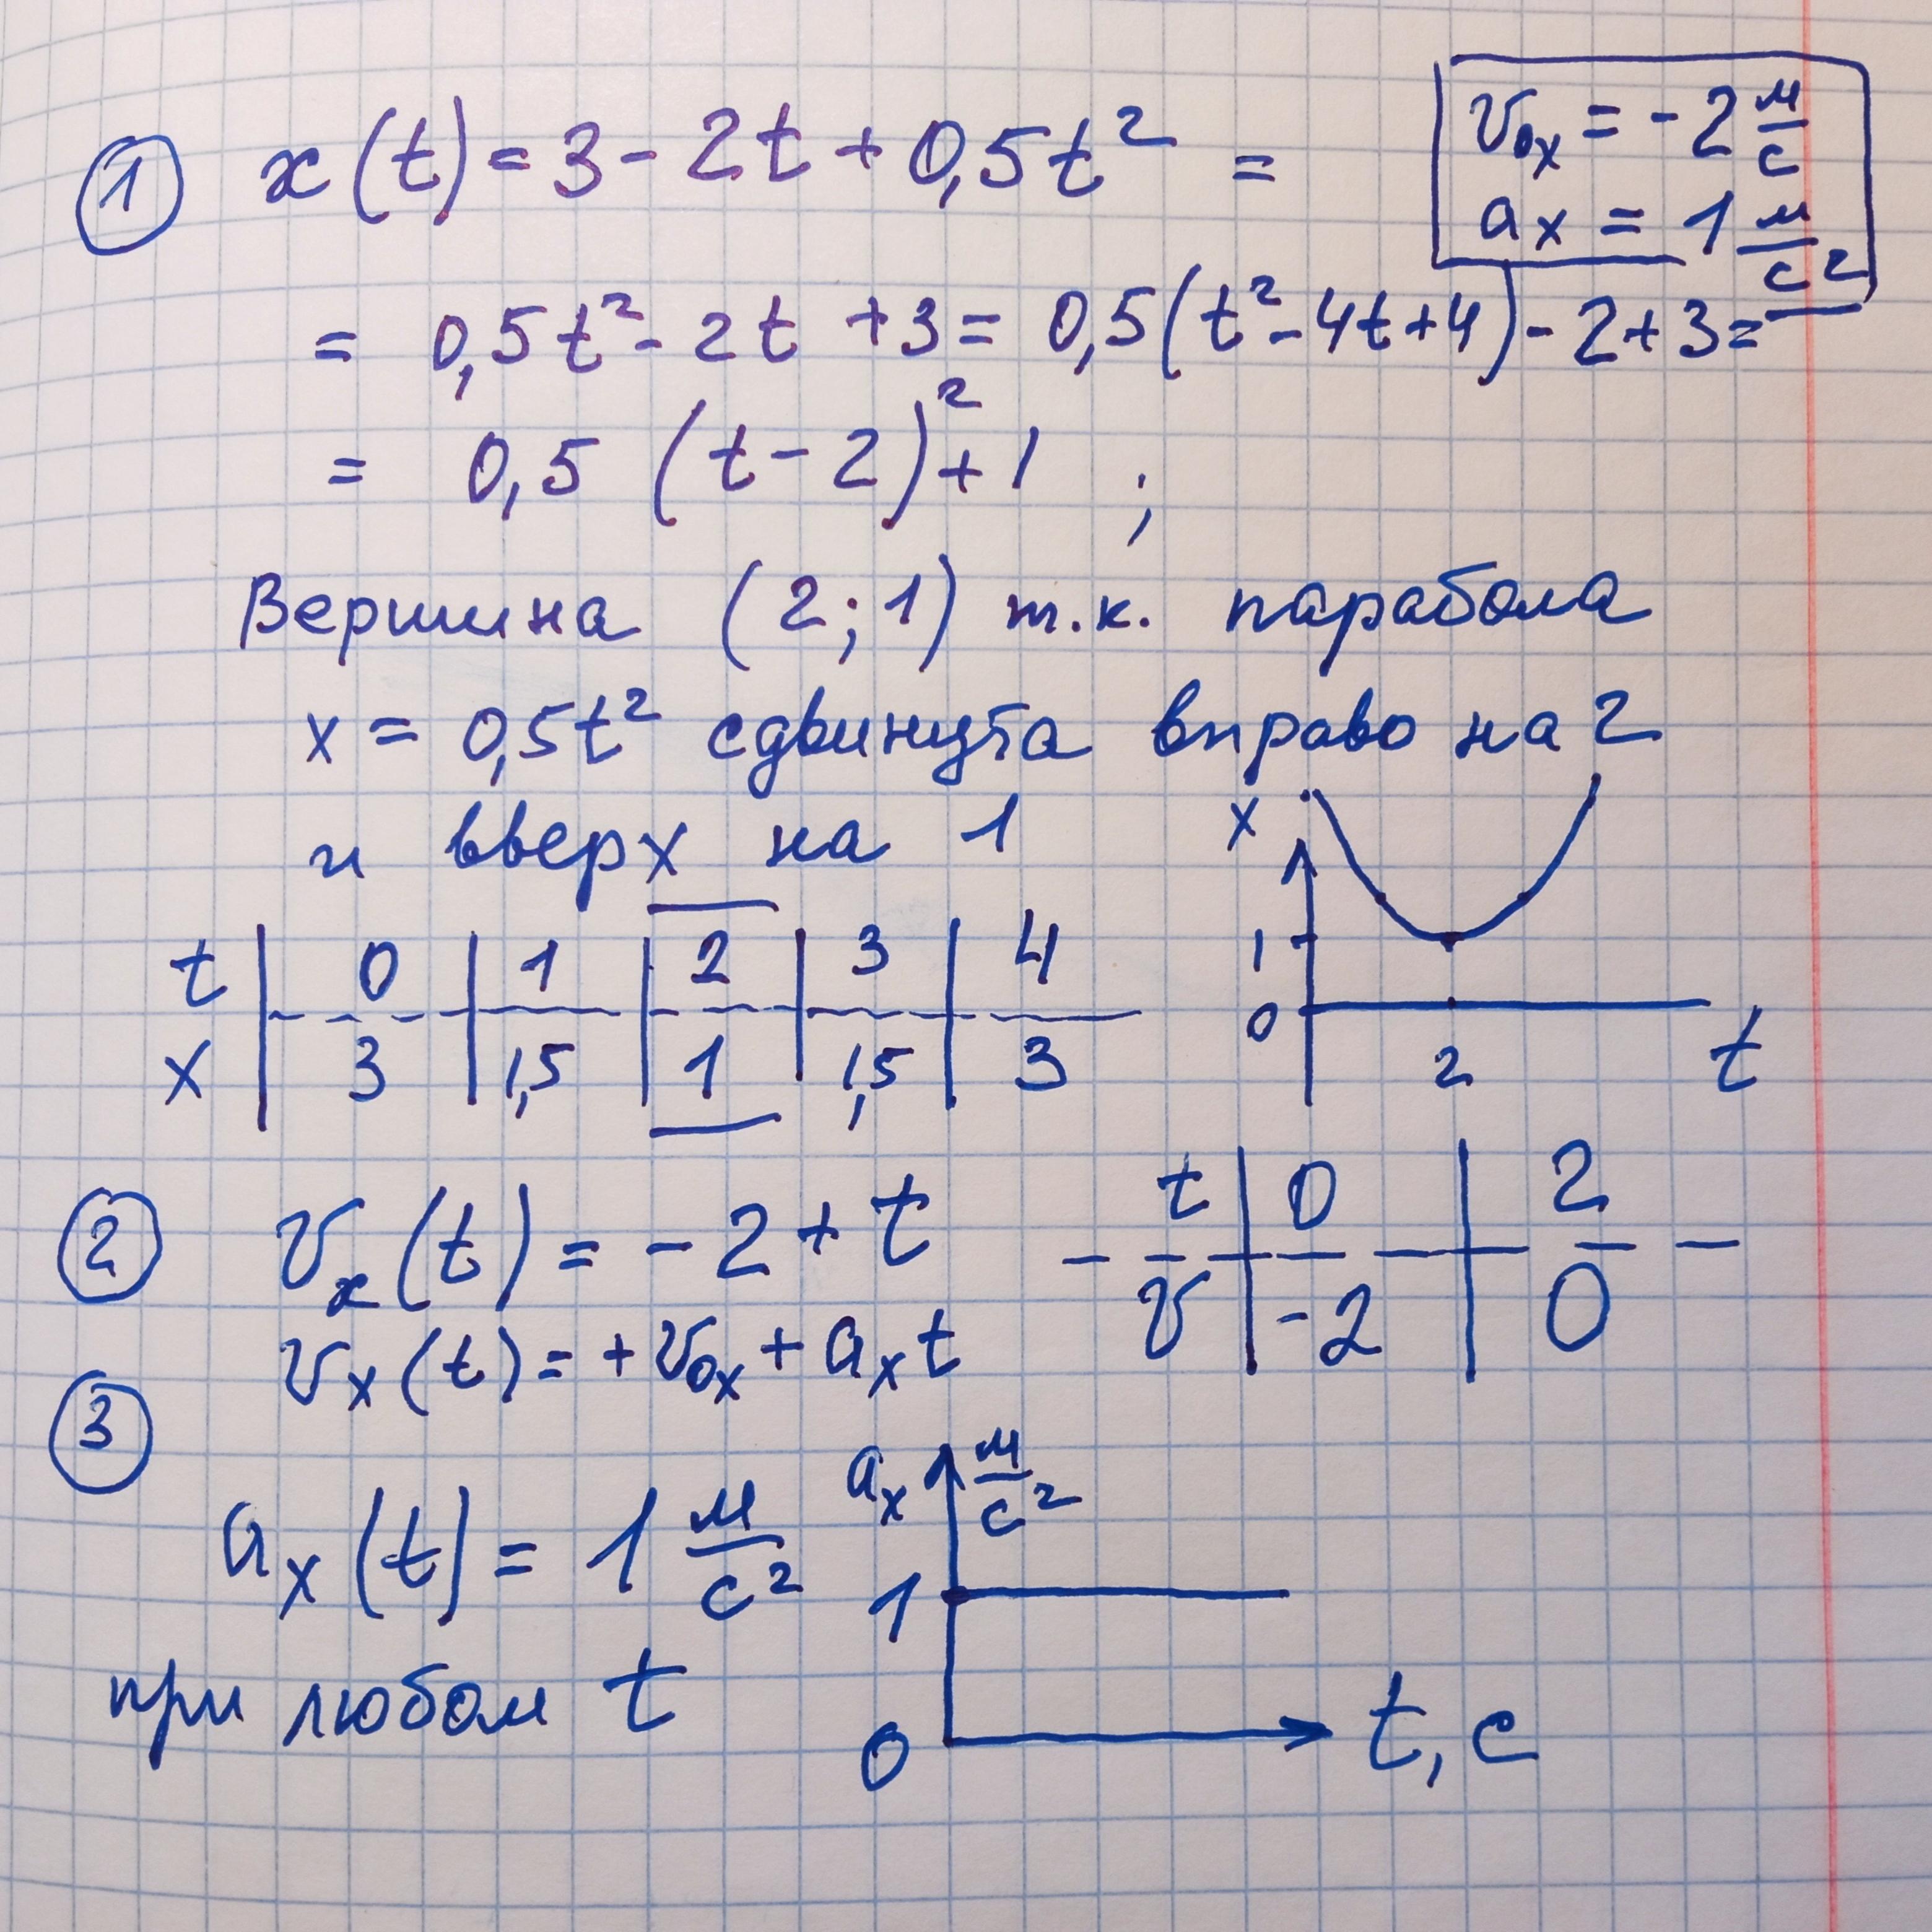 ① x(t) = 3 - 2t + 0,5t² =
v₀ₓ = -2 м/с
aₓ = 1 м/с²
= 0,5t² - 2t + 3 = 0,5(t² - 4t + 4) - 2 + 3 =
= 0,5 (t - 2)² + 1 ;
Вершина (2; 1) т.к. парабола
x = 0,5t² сдвинута вправо на 2
и вверх на 1
x
1
0
2
t
t | 0 | 1 | 2 | 3 | 4
x | 3 | 1,5 | 1 | 1,5 | 3
② vₓ(t) = -2 + t
vₓ(t) = +v₀ₓ + aₓt
t | 0 | 2
v | -2 | 0
③
aₓ(t) = 1 м/с²
при любом t
aₓ м/с²
1
0
t, с